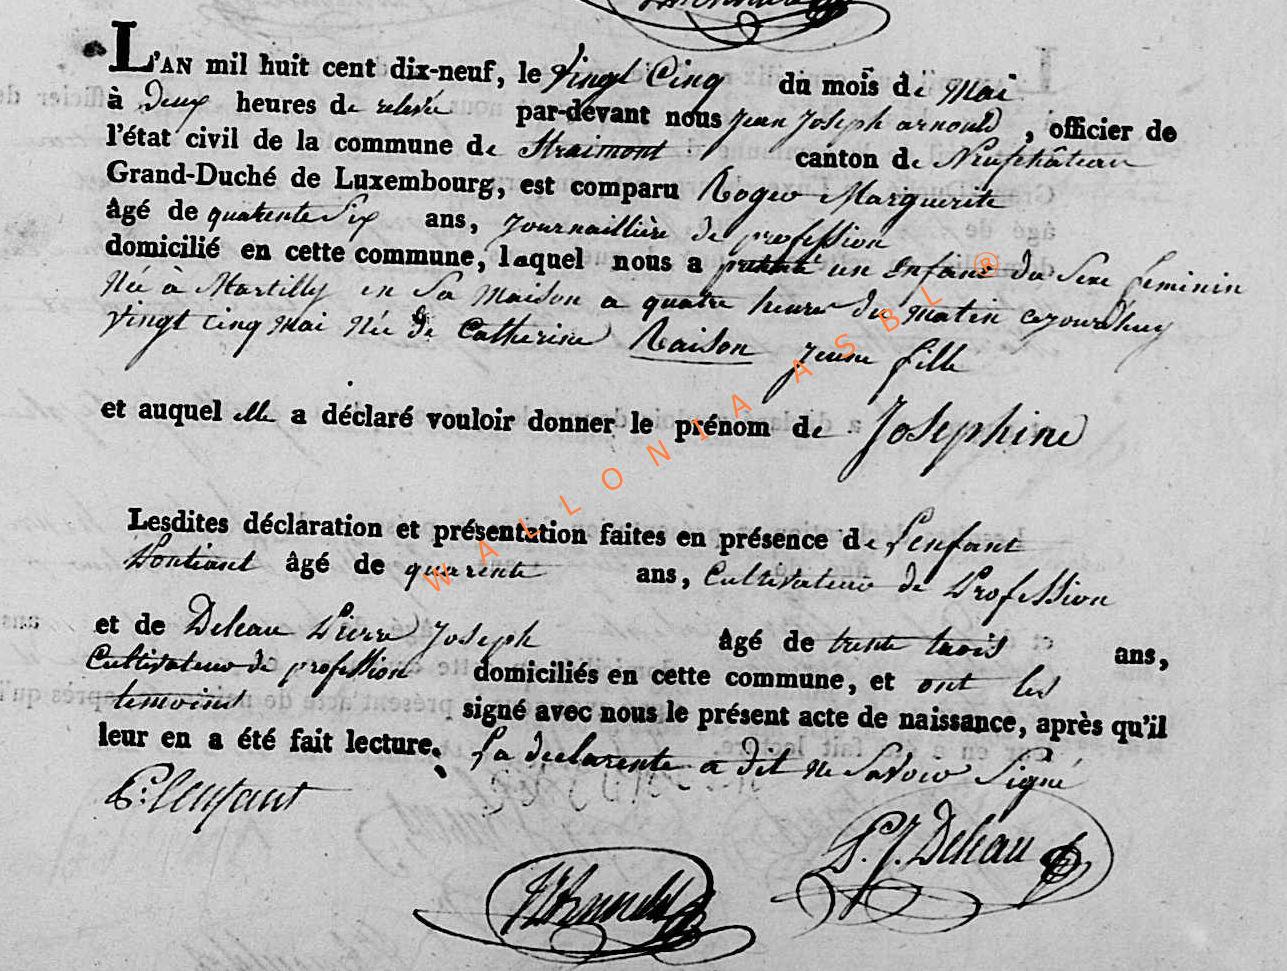 L'AN mil huit cent dix-neuf, le vingt Cinq du mois de Mai
à Deux heures de relevée par-devant nous jean joseph arnould, officier de
l'état civil de la commune de Straimont canton de Neufchâteau
Grand-Duché de Luxembourg, est comparu Roger Marguerite
âgé de quarente Six ans, journaillière de profession
domicilié en cette commune, laquel nous a présenté un Enfant du Sexe feminin
Née à Martilly en Sa Maison a quatre heures du Matin cejourdhuy
vingt cinq Mai Née de Catherine Raison jeune fille
et auquel elle a déclaré vouloir donner le prénom de Josephine
Lesdites déclaration et présentation faites en présence de L'enfant
Pontiant âgé de quarente ans, Cultivateur de Profession
et de Deleau Pierre Joseph âgé de trente trois ans,
Cultivateur de profession domiciliés en cette commune, et ont les
temoins signé avec nous le présent acte de naissance, après qu'il
leur en a été fait lecture. La declarente a dit ne Savoir Signé
P: lenfant
P. J. Deleau
JJArnould
WALLONIA ASBL ®